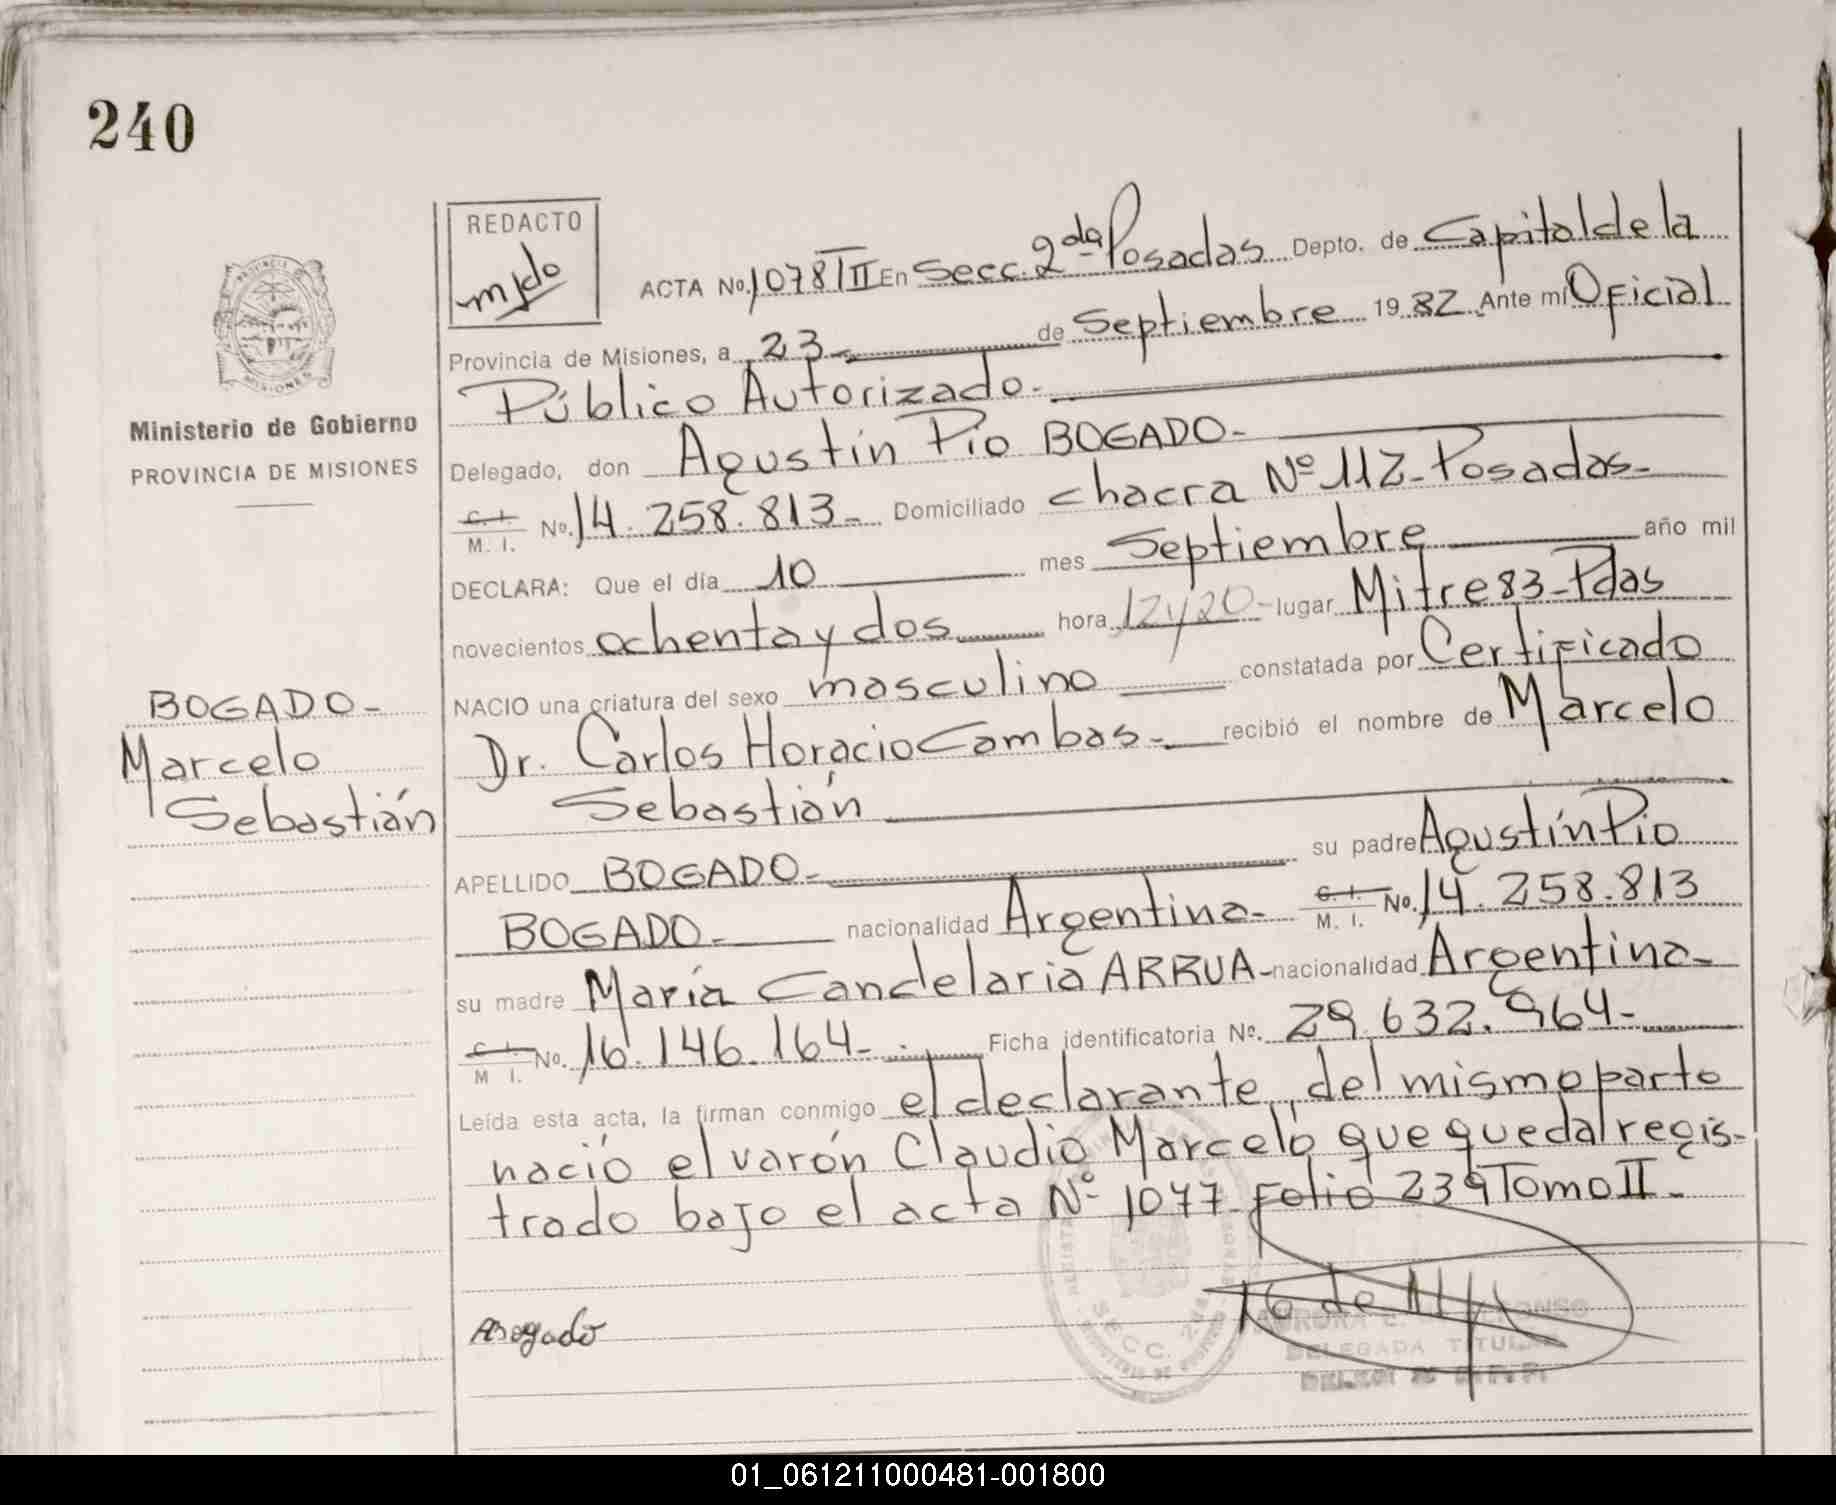 240
REDACTO
ACTA No. 1078 TII En Secc. 2da Posadas Depto. de Capital de la
Provincia de Misiones, a 23 de Septiembre 1982 Ante mí Oficial
Público Autorizado.
Ministerio de Gobierno
PROVINCIA DE MISIONES
Delegado, don Agustín Pío BOGADO-
C. I. M. I. No. 14.258.813 Domiciliado chacra Nº 112-Posadas-
DECLARA: Que el día 10 mes Septiembre año mil
novecientos ochenta y dos hora 12y20- lugar Mitre 83-Pdas
NACIO una criatura del sexo masculino constatada por Certificado
Dr. Carlos Horacio Cambas- recibió el nombre de Marcelo
Sebastián
BOGADO-
Marcelo
Sebastián
APELLIDO BOGADO- su padre Agustín Pío
BOGADO- nacionalidad Argentina- C. I. M. I. No. 14.258.813
su madre María Candelaria ARRUA- nacionalidad Argentina-
C. I. M. I. No. 16.146.164- Ficha identificatoria Nº. 29.632.964-
Leída esta acta, la firman conmigo el declarante, del mismo parto
nació el varón Claudio Marcelo que queda regis-
trado bajo el acta Nº 1077 Folio 239 Tomo II-
SECC. 2da
DELEGADA TITULAR
01_061211000481-001800